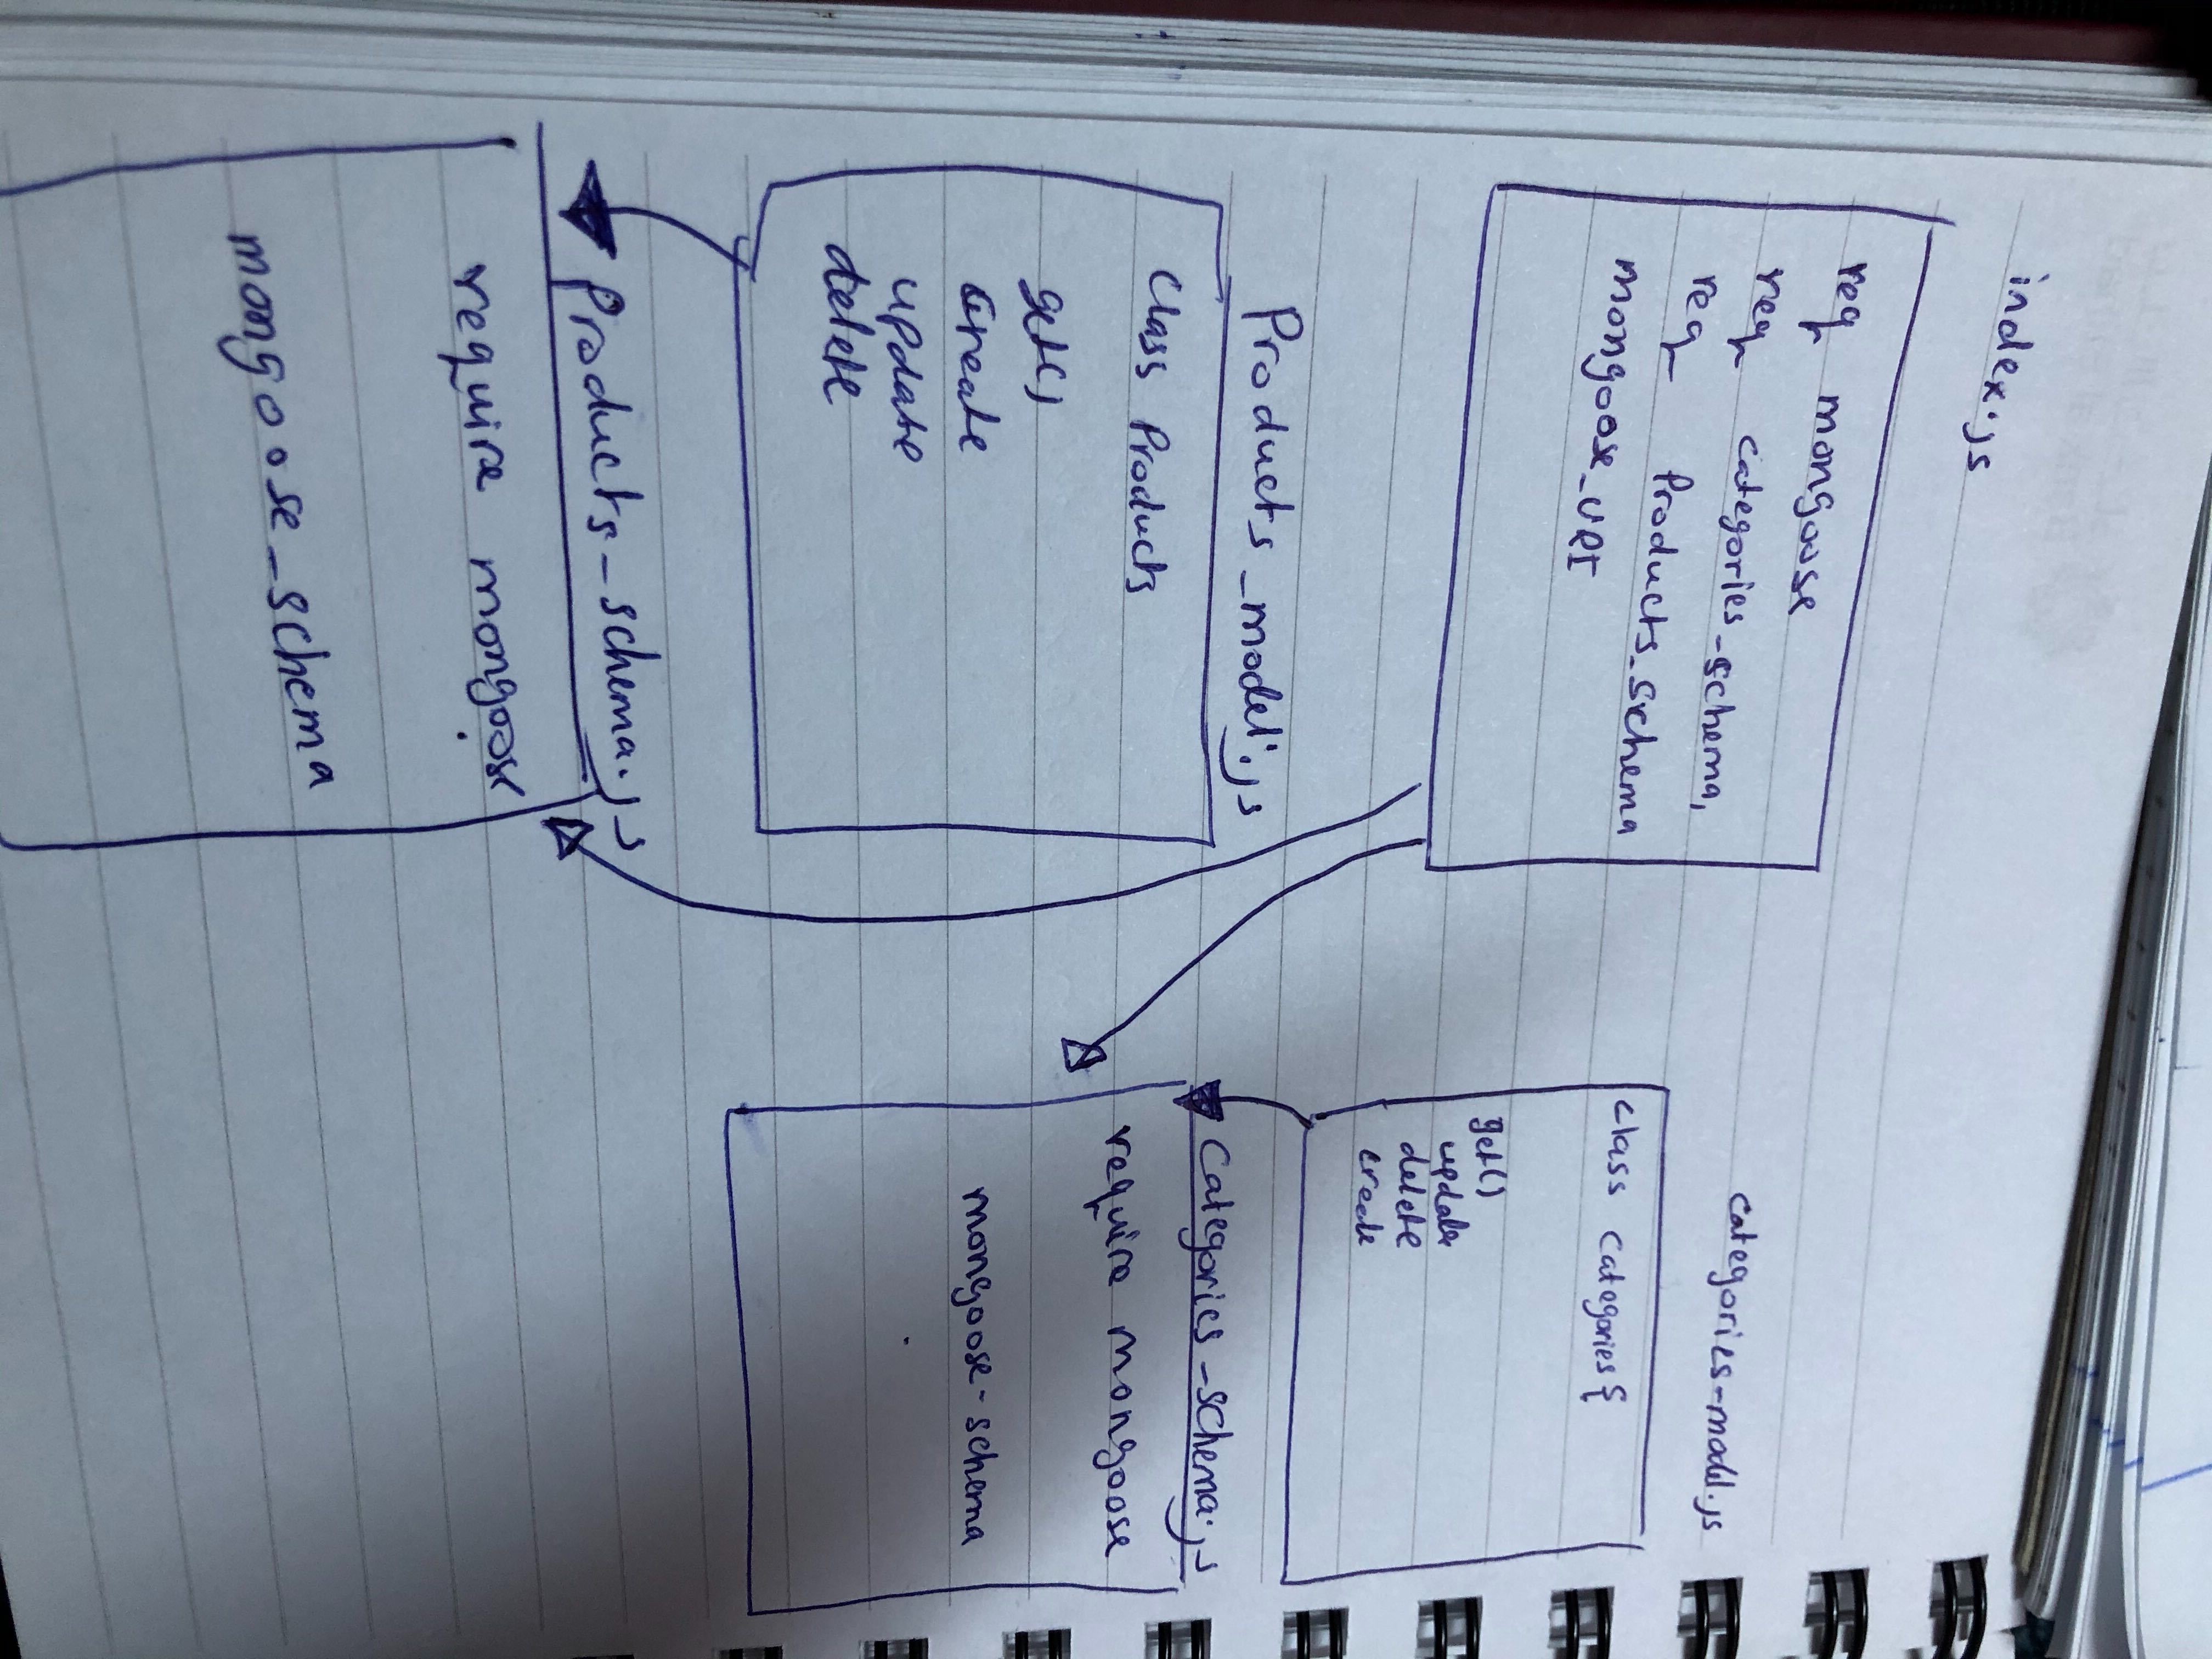 index.js
req mongoose
req categories_schema,
req Products_schema
mongoose_URI
Products_model.js
Class Products
get()
Create
update
delete
Products_schema.js
require mongoose
mongoose_schema
categories-model.js
class categories{
get()
update
delete
create
Categories_schema.js
require mongoose
mongoose-schema